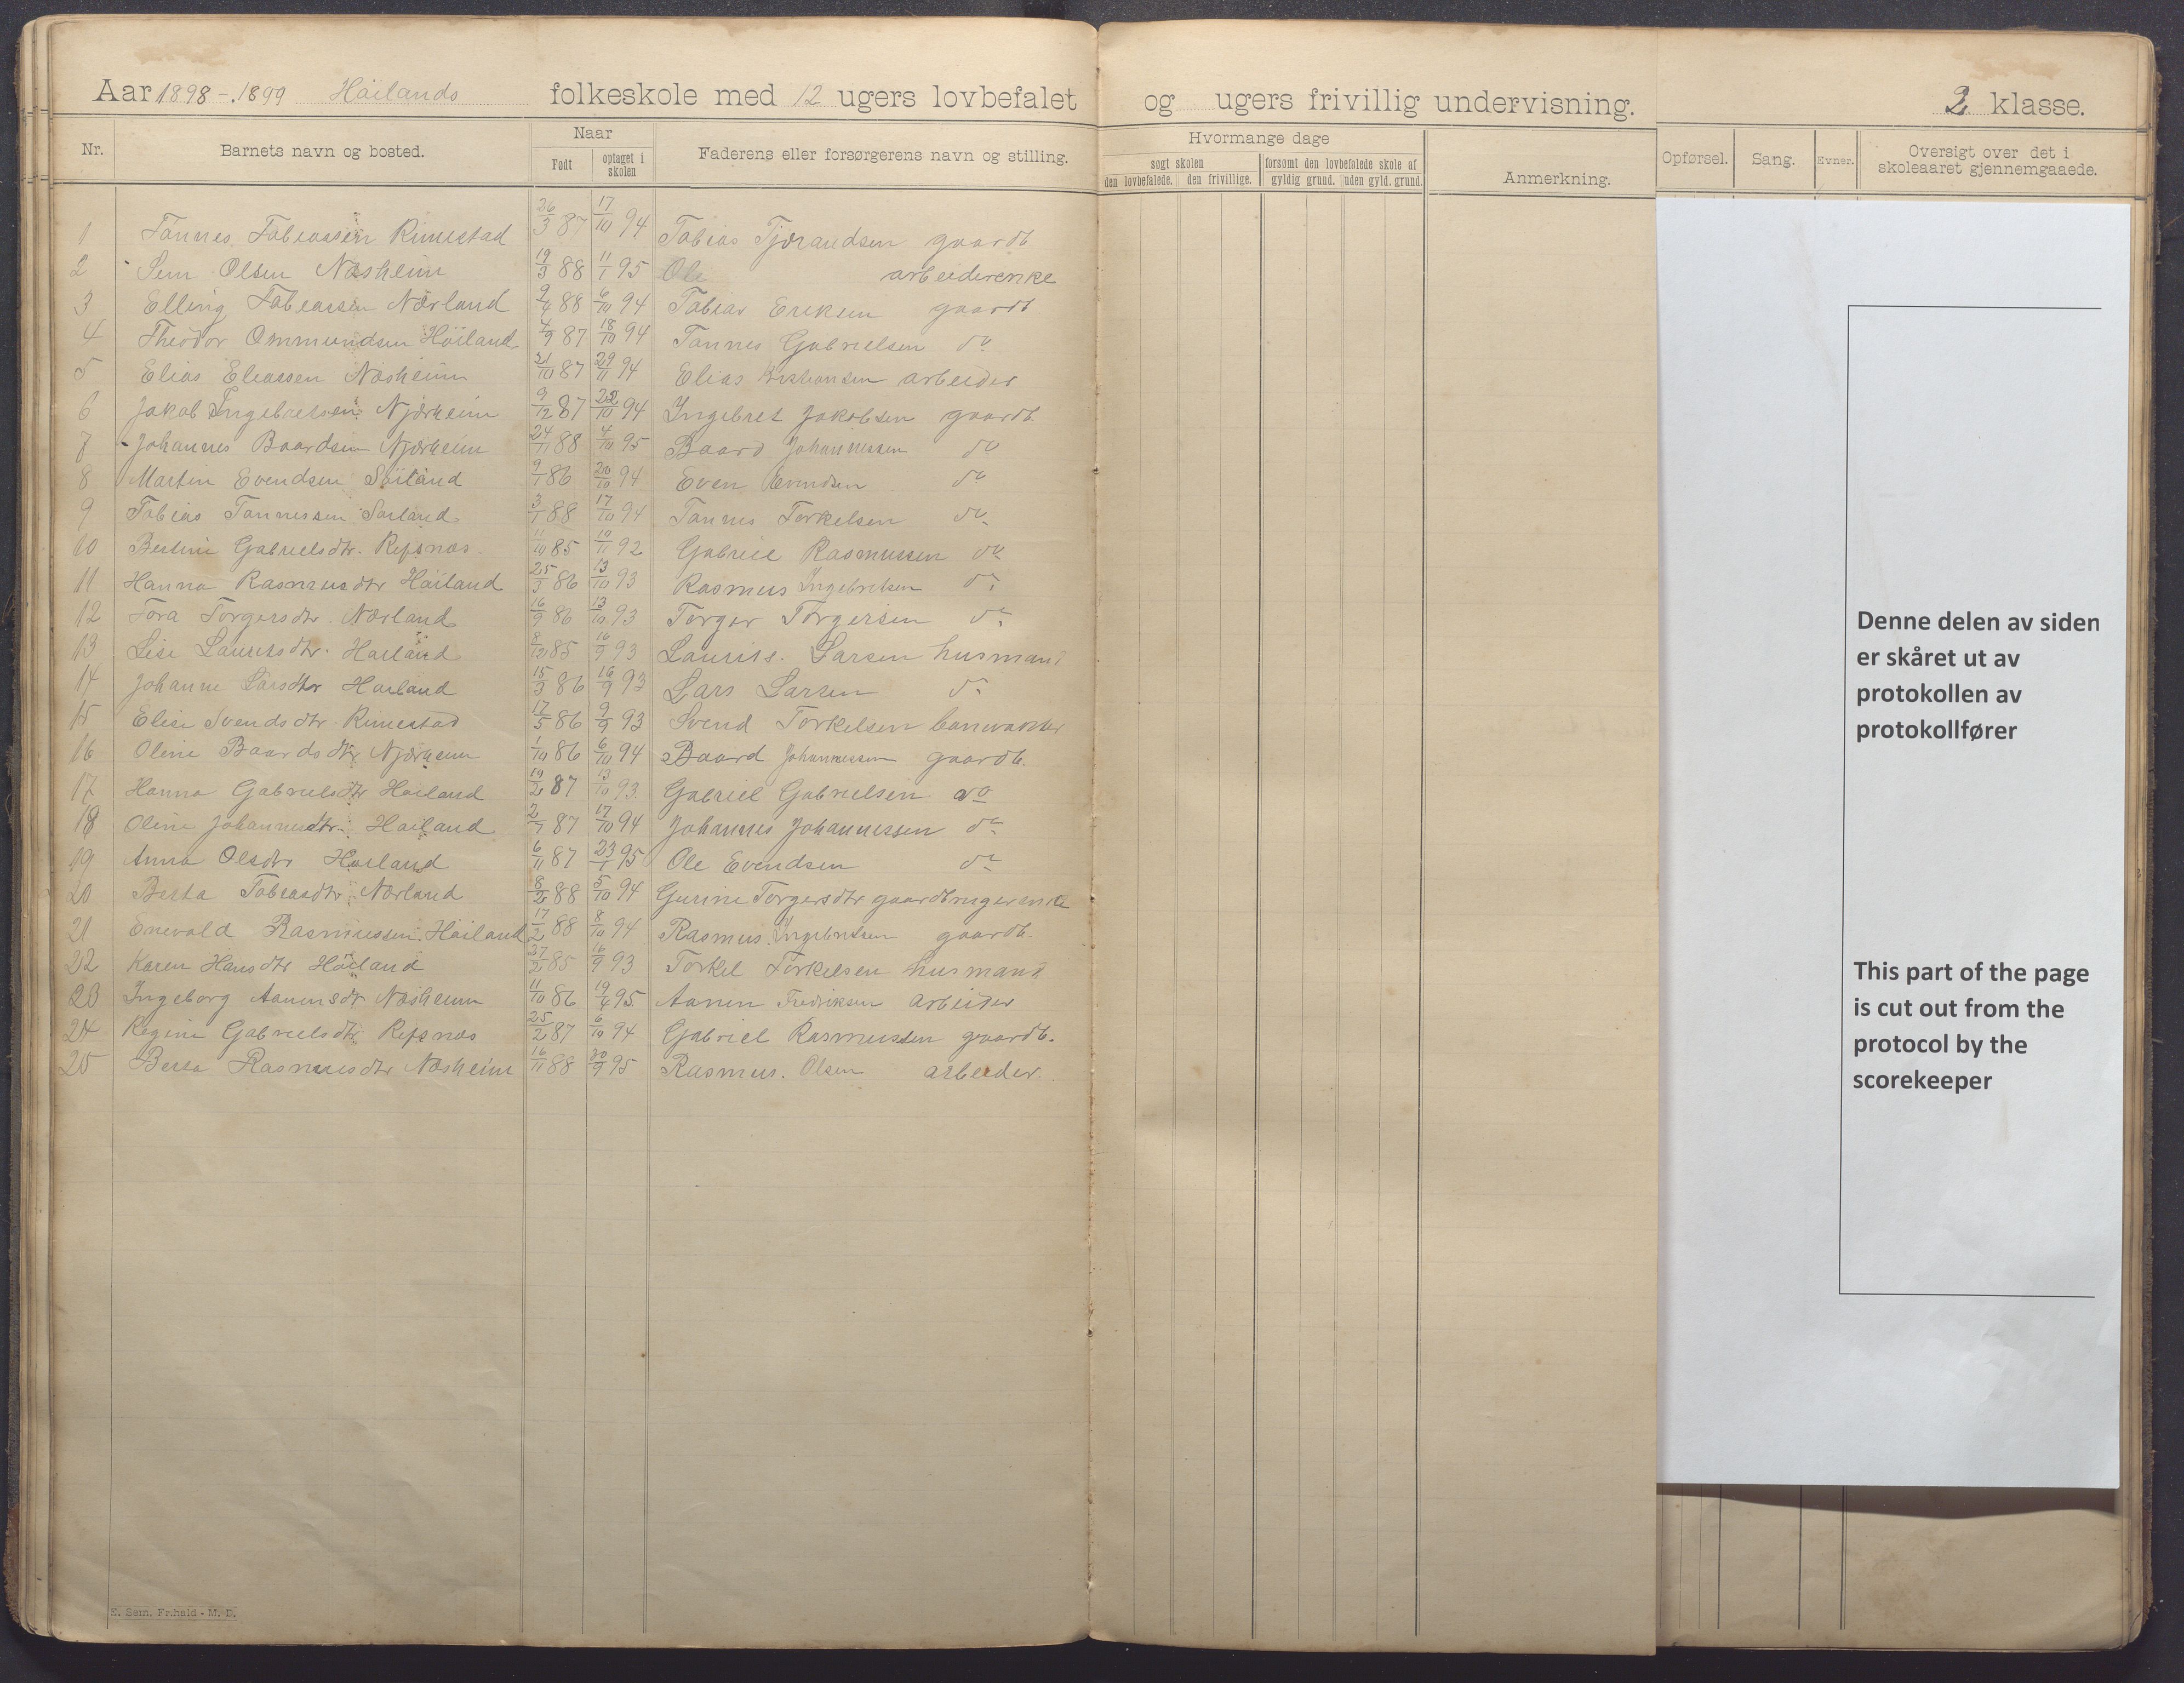 Aar 1898-1899 Höilands folkeskole med 12 ugers lovbefalet og ugers frivillig undervisning. 2 klasse.
Nr. Barnets navn og bosted. Naar Født optaget i skolen Faderens eller forsørgerens navn og stilling. Hvormange dage søgt skolen den lovbefalede. den frivillige. forsømt den lovbefalede skole af gyldig grund. uden gyld. grund. Anmerkning. Opførsel. Sang. Evner. Oversigt over det i skoleaaret gjennemgaaede.
1 Tønnes Tobiassen Rimestad 26/3 87 17/10 94 Tobias Tjørandsen gaardb
2 Sem Olsen Næsheim 19/3 88 11/1 95 Ole arbeiderenke
3 Elling Tobiassen Nærland 88 6/10 94 Tobias Eriksen gaardb
4 Theodor Ommundsen Höiland 4/9 87 18/10 94 Tønnes Gabrielsen do
5 Elias Eliassen Næsheim 21/10 87 29/11 94 Elias Kristiansen arbeider
6 Jakob Ingebretsen Njærheim 9/12 87 22/10 94 Ingebret Jakobsen gaardb.
7 Johannes Baardsen Njærheim 24/11 88 4/10 95 Baard Johannessen do
8 Martin Evendsen 9/1 86 20/10 94 Even Evendsen do
9 Tobias Tønnessen 3/1 88 17/10 94 Tønnes Torkelsen do
10 Gabrielsdtr. Refsnæs. 11/10 85 19/11 92 Gabriel Rasmussen do
11 Hanna Rasmusdtr Höiland 25/3 86 13/10 93 Rasmus Ingebretsen do
12 Tora Torgersdtr. Nærland 16/9 86 13/10 93 Torger Torgersen do
13 Lise Lauritsdtr. Höiland 8/12 85 16/9 93 Laurits. Larsen husmand
14 Johanne Larsdtr Höiland 15/3 86 16/9 93 Lars Larsen do
15 Elise Svendsdtr Rimestad 17/5 86 9/9 93 Svend Torkelsen banevogter
16 Oline Baardsdtr Njærheim 1/10 86 6/10 94 Baard Johannessen gaardb.
17 Hanna Gabrielsdtr Höiland 19/2 87 13/10 93 Gabriel Gabrielsen do
18 Oline Johannesdtr. Höiland 2/7 87 17/10 94 Johannes Johannessen do
19 Anna Olsdtr Höiland 6/11 87 23/1 95 Ole Evendsen do
20 Berta Tobiasdtr Nærland 8/2 88 5/10 94 Gurine Torgersdtr gaardbrugerenke
21 Enevald Rasmussen Höiland 17/2 88 8/10 94 Rasmus Ingebretsen gaardb.
22 Karen Hansdtr Höiland 27/2 85 16/9 93 Torkel Torkelsen husmand
23 Ingeborg Aanensdtr Næsheim 11/10 86 19/4 95 Aanen Fredriksen arbeider
24 Regine Gabrielsdtr Refsnæs 25/2 87 6/10 94 Gabriel Rasmussen gaardb.
25 Berta Rasmusdtr Næsheim 16/11 88 20/9 95 Rasmus. Olsen arbeider.
E. Sem. Fr.hald - M. D.
Denne delen av siden
er skåret ut av
protokollen av
protokollfører
This part of the page
is cut out from the
protocol by the
scorekeeper